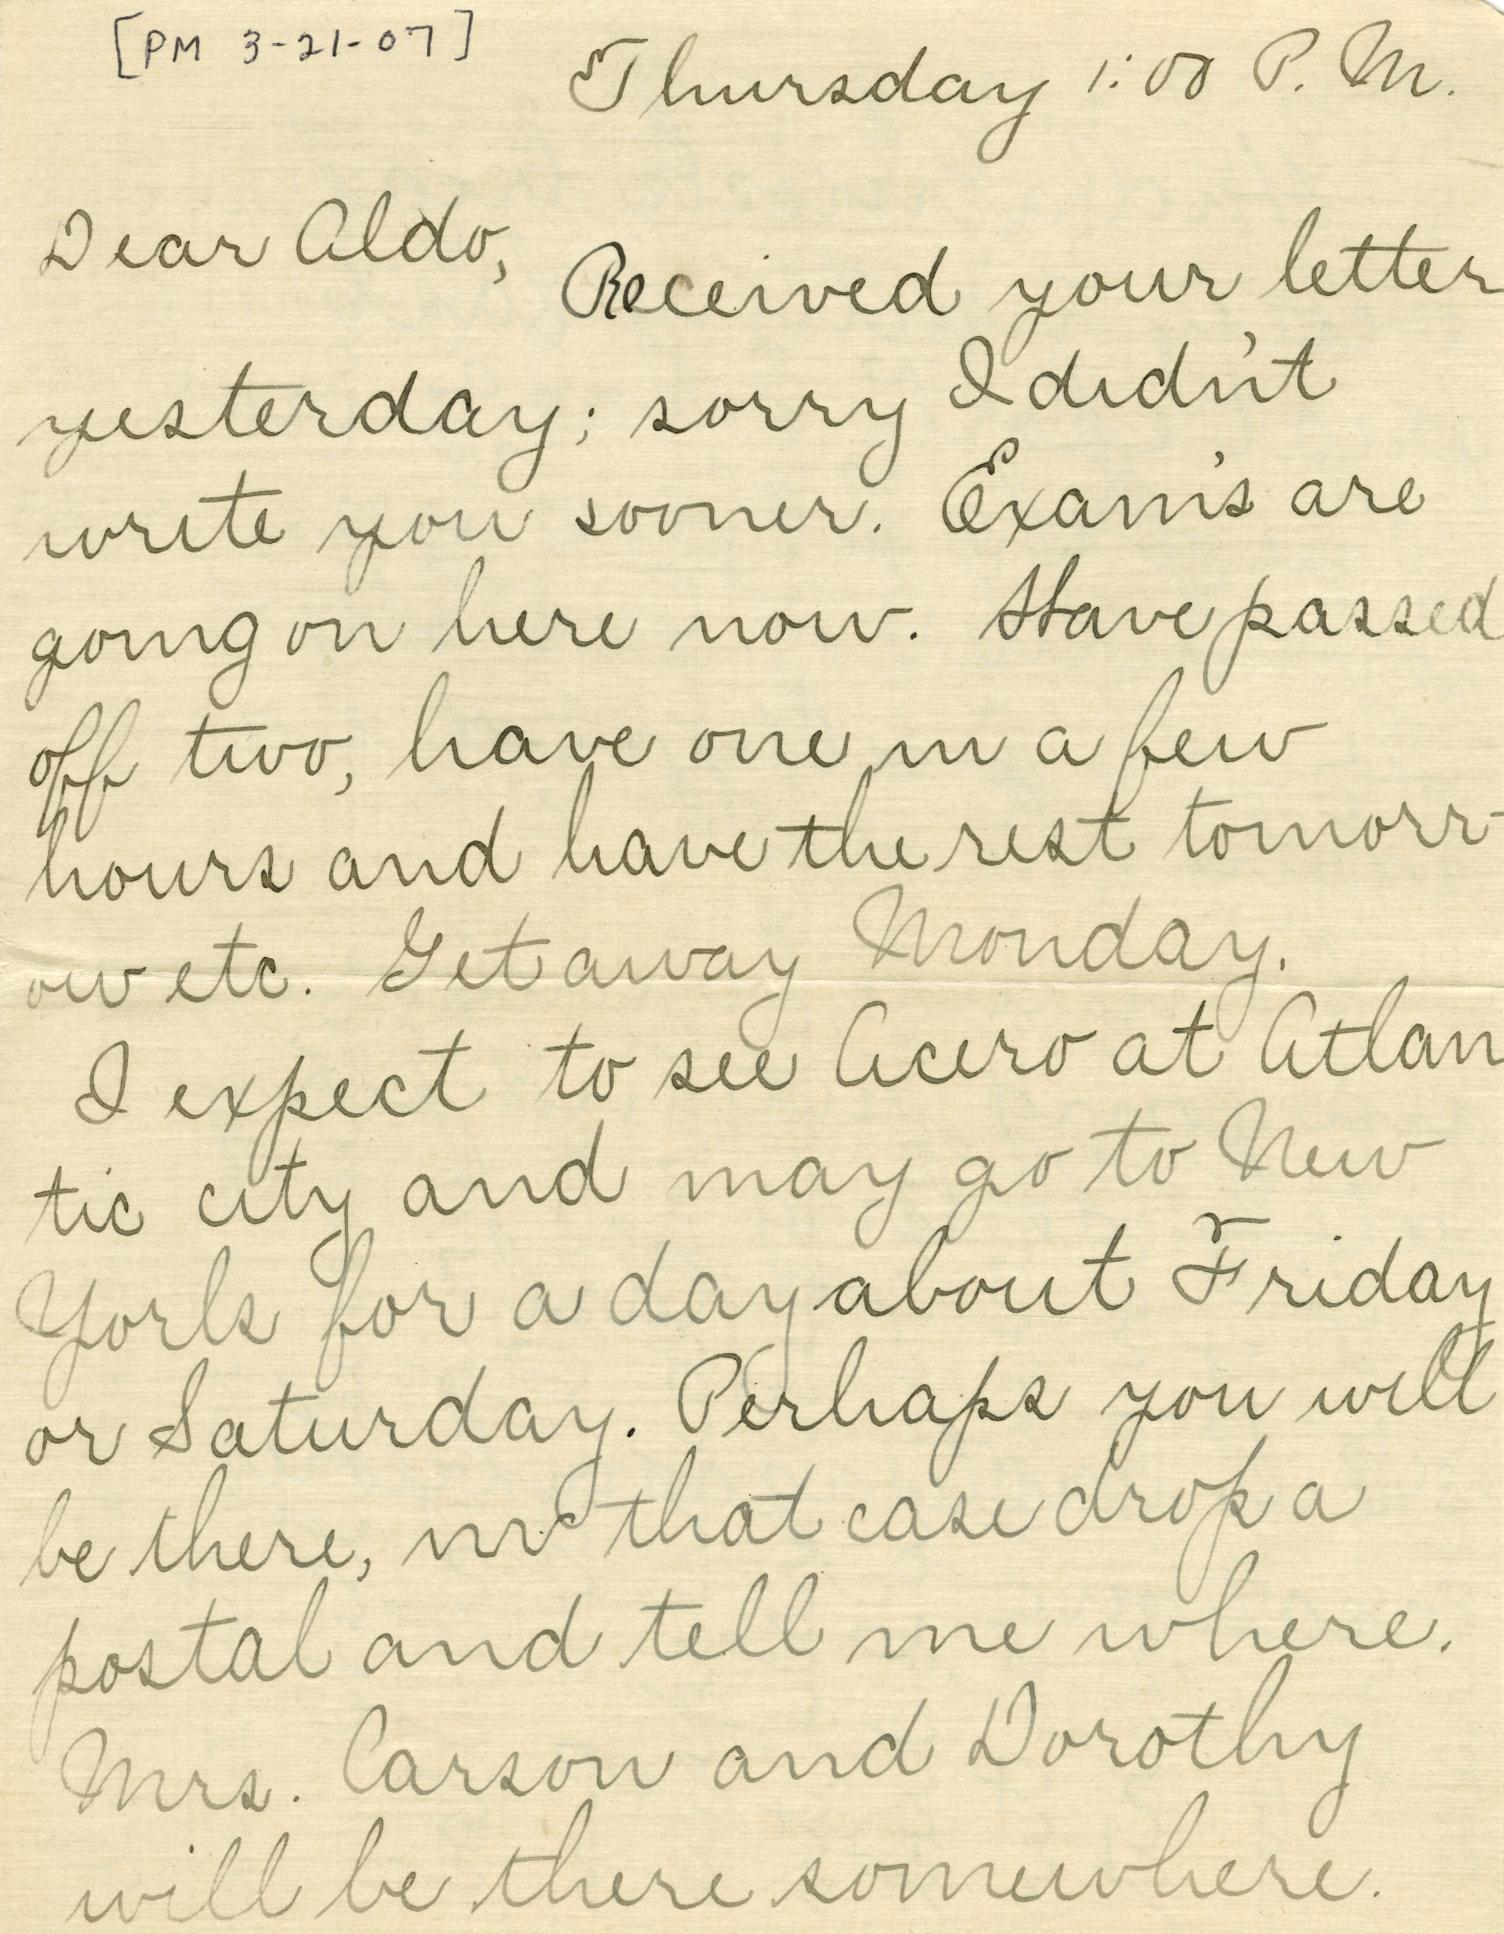 [PM 3-21-07]
Thursday 1:00 P. M.
Dear Aldo,
Received your letter
yesterday; sorry I didn't
write you sooner. Exam's are
going on here now. Have passed
off two, have one in a few
hours and have the rest tomorr-
ow etc. Get away Monday.
I expect to see Acero at Atlan
tic city and may go to New
York for a day about Friday
or Saturday. Perhaps you will
be there, in that case drop a
postal and tell me where.
Mrs. Carson and Dorothy
will be there somewhere.